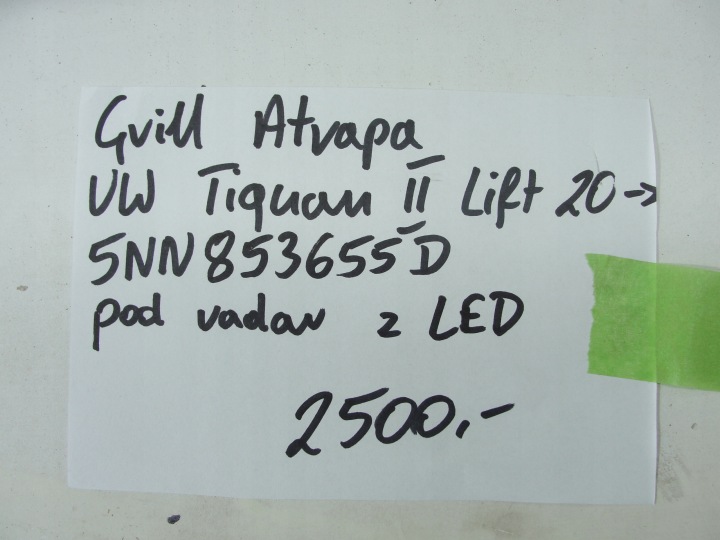 Grill Atrapa
VW Tiguan II Lift 20->
5NN853655D
pod radar z LED
2500,-